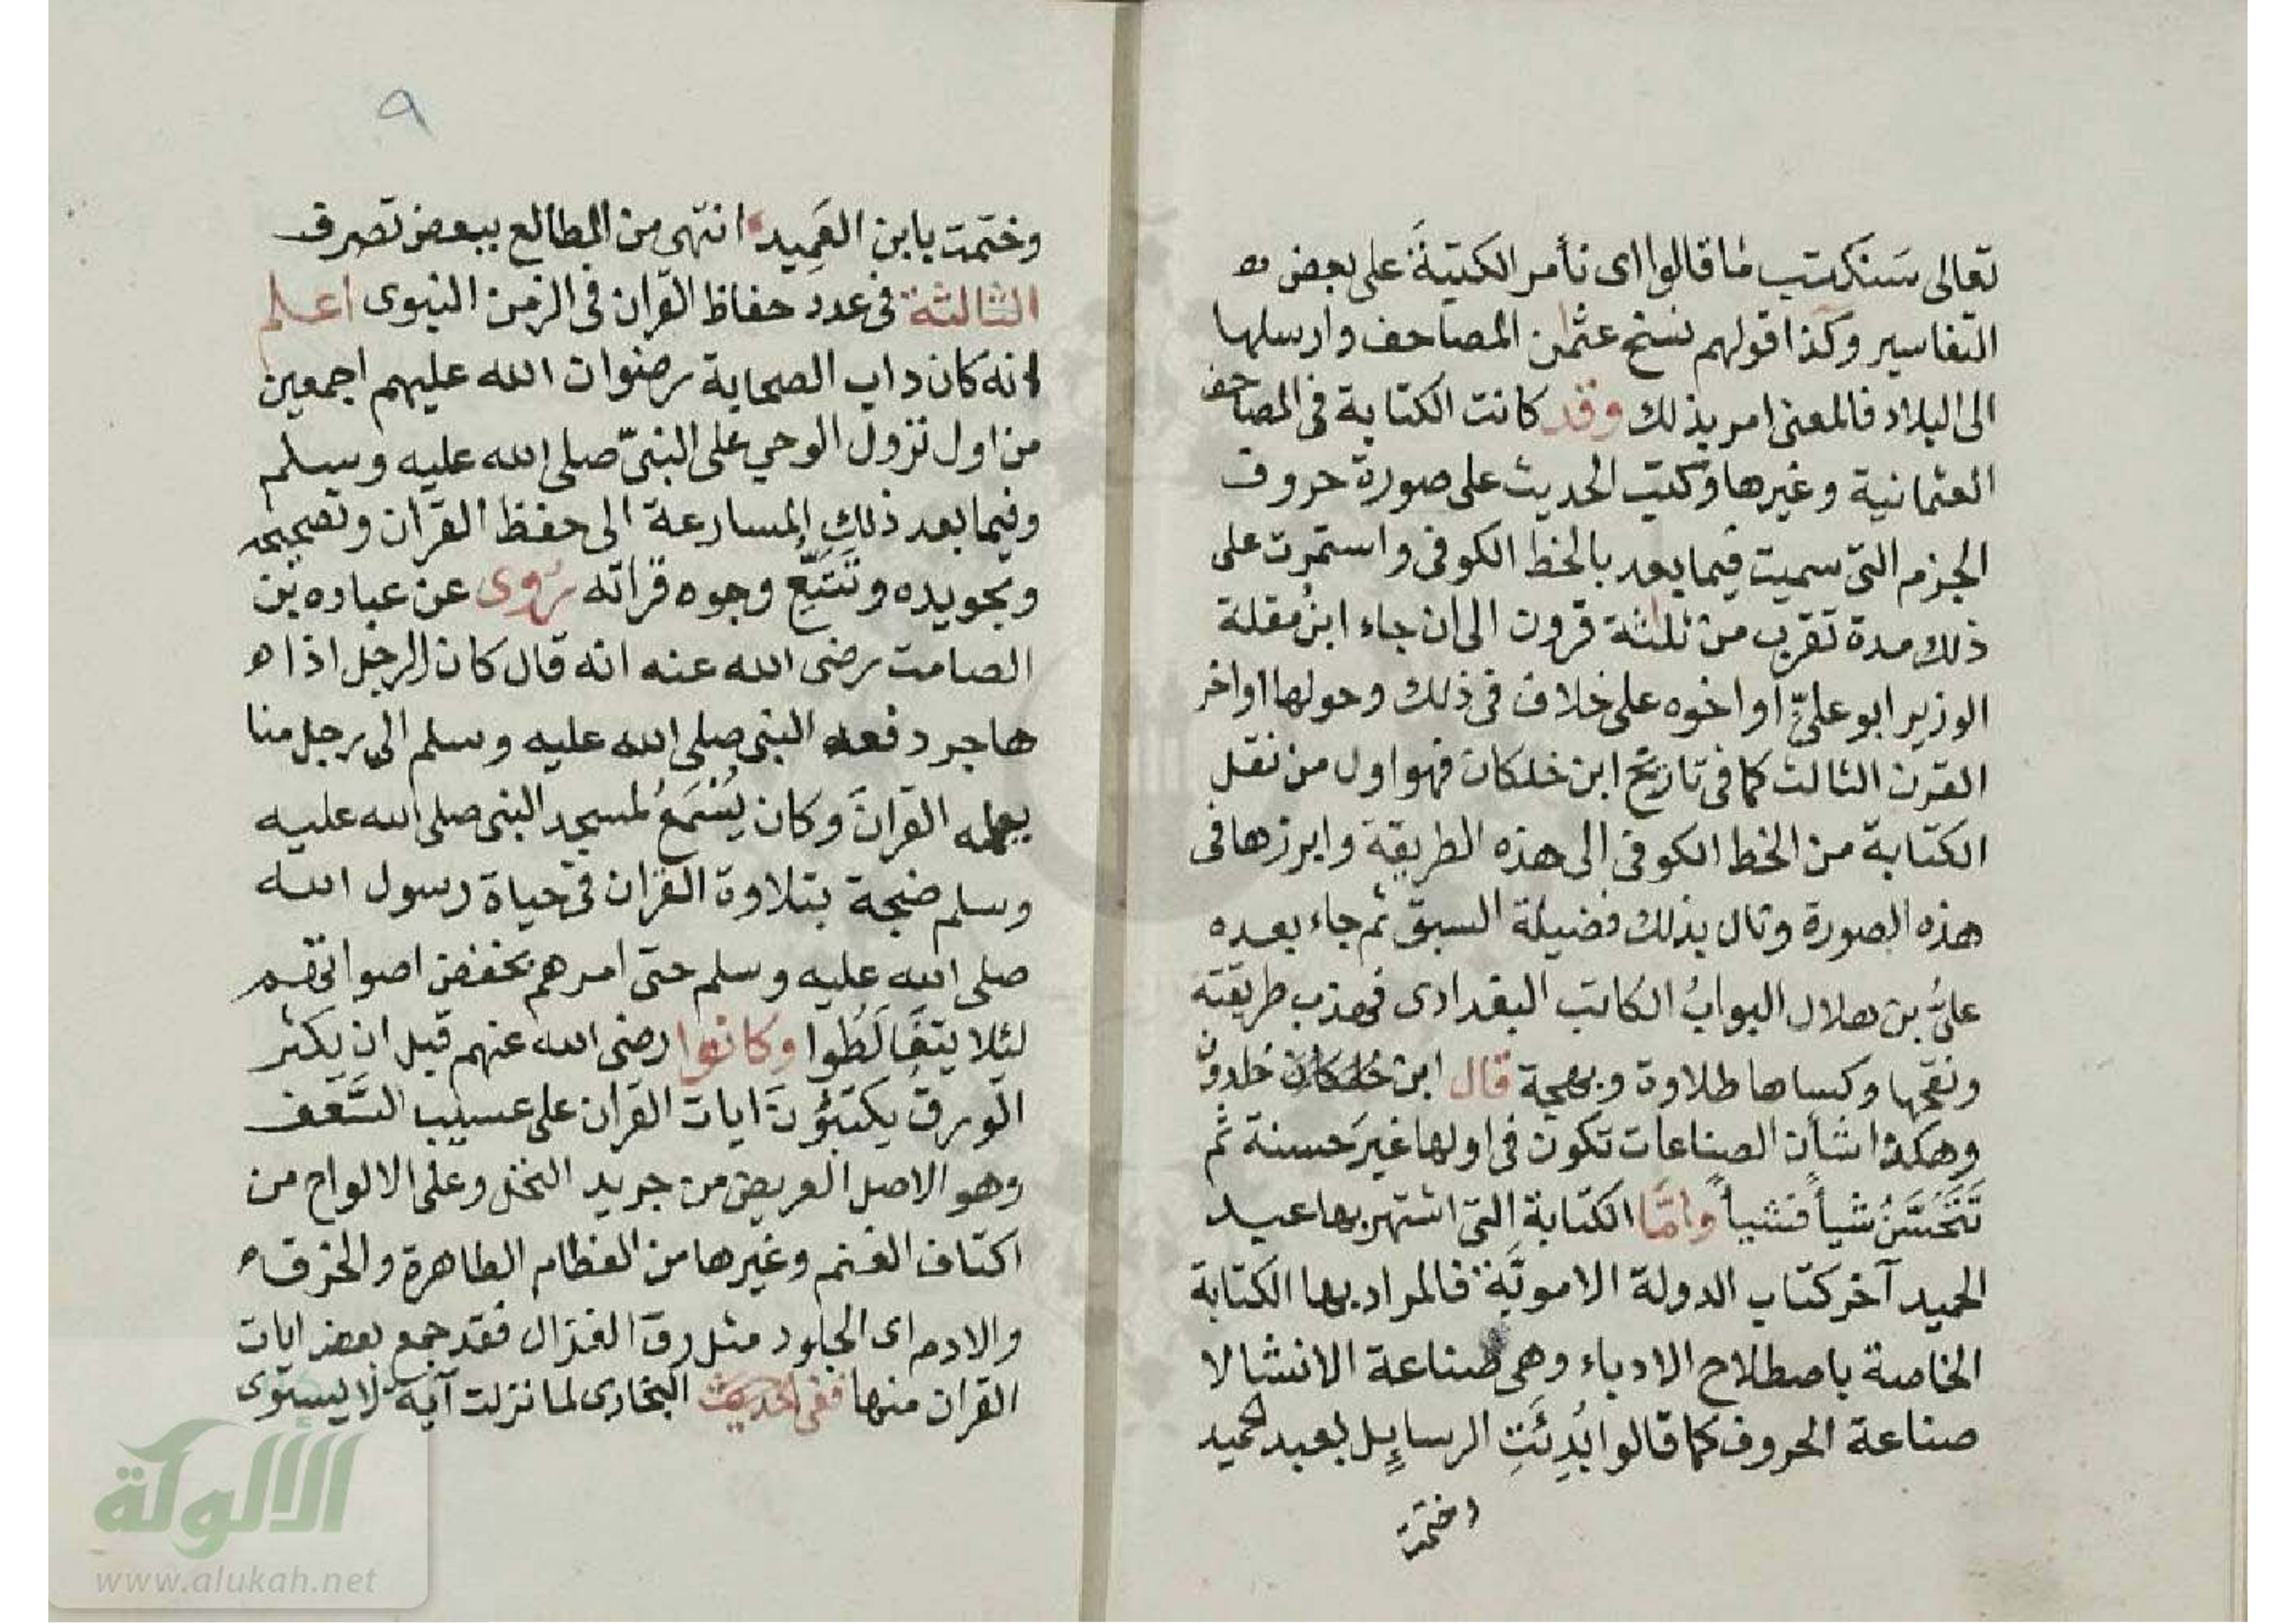 تعالى سَنكتب ما قالوا اى نأمر الكتبةَ على بعض
التفاسير وكذا قولهم نسخ عثمٰن المصاحف وارسلها
الى البلاد فالمعنى امر بذلك وقد كانت الكتابة فى المصاحف
العثمانية وغيرها وكتب الحديث على صورة حروف
الجزم التى سميت فيما بعد بالخط الكوفى واستمرت على
ذلك مدة تقرب من ثلثة قرون الى ان جاء ابنُ مقلة
الوزير ابو علىّ او اخوه على خلاف فى ذلك وحولها اواخر
القرن الثالث كما فى تاريخ ابن خلكان فهو اول من نقل
الكتابة من الخط الكوفى الى هذه الطريقة وابرزها فى
هذه الصورة ونال بذلك فضيلة السبق ثم جاء بعده
علىُّ بن هلال البوابُ الكاتب البغدادى فهذب طريقته
ونقحها وكساها طلاوة وبهجة قال ابن خلكان خلدون
وهكذا شأن الصناعات تكون فى اولها غيرَ حسنة ثم
تَتَحَسَّنُ شيأً فشيأً وامَّا الكتابة التى اشتهر بها عبد
الحميد آخر كتاب الدولة الامويَّة فالمراد بها الكتابة
الخاصة باصطلاح الادباء وهى صناعة الانشا لا
صناعة الحروف كما قالوا بُدِئَتِ الرسايِل بعبد الحميد
وختمت
٩
وختمت بابن العَمِيد انتهى من المطالع ببعض تصرف
الثالثة فى عدد حفاظ القران فى الزمن النبوى اعلم
انه كان داب الصحابة رضوان الله عليهم اجمعين
من اول نزول الوحي على النبىّ صلى الله عليه وسلم
وفيما بعد ذلك المسارعة الى حفظ القران وتصحيحه
وتجويده وتَتَبُّعِ وجوه قراته رُوى عن عباده بن
الصامت رضى الله عنه انه قال كان الرجل اذا
هاجر دفعه النبى صلى الله عليه وسلم الى رجل منا
يعلمه القرانَ وكان يُسْمَعُ لمسجد النبى صلى الله عليه
وسلم ضجة بتلاوة القران فى حياة رسول الله
صلى الله عليه وسلم حتى امرهم بخفض اصواتهم
لئلا يتغَالَطُوا وكانوا رضى الله عنهم قبل ان يكثر
الورق يكتبُونَ ايات القران على عسيب السَّعَف
وهو الاصل العريض من جريد النخل وعلى الالواح من
اكتاف الغنم وغيرها من العظام الطاهرة والخرق
والادم اى الجلود مثل رق الغزال فقد جمع بعض ايات
القران منها ففى حديث البخارى لما نزلت آية لا يستوى
الألوكة
www.alukah.net